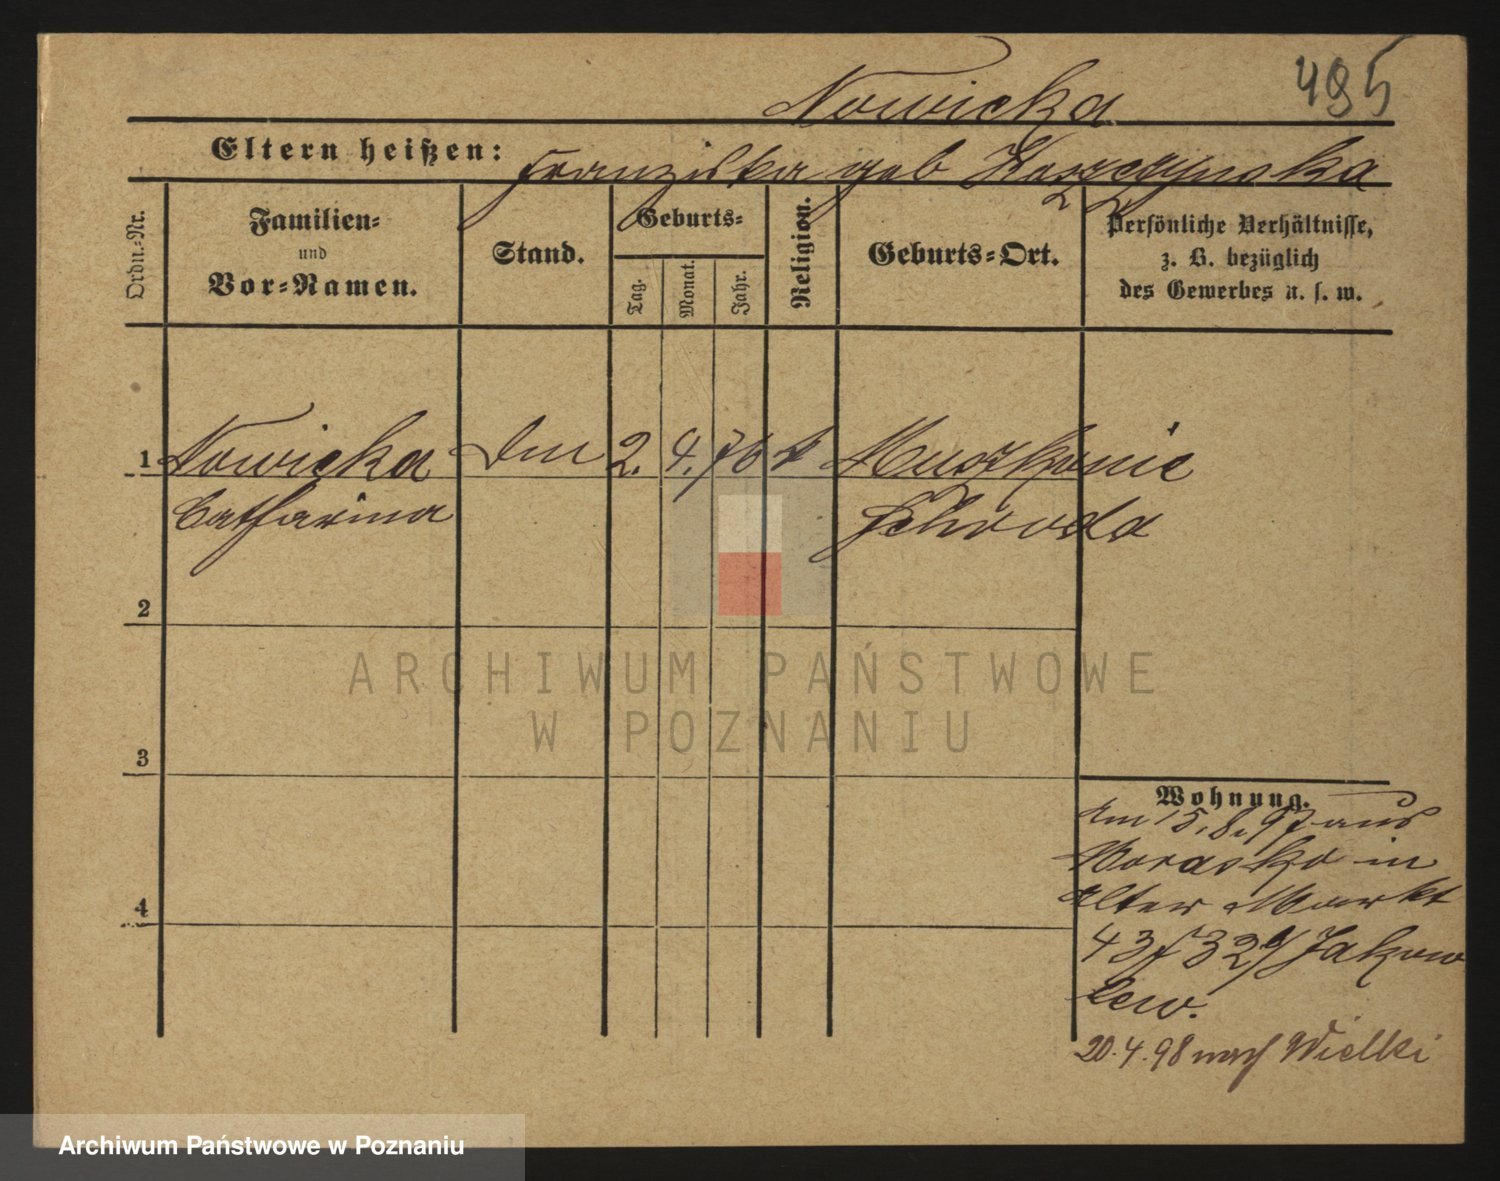 495
Nowicka
Eltern heißen: Franziska geb Kaszczynska
Ordn.-Nr.
Familien-
und
Vor-Namen.
Stand.
Geburts-
Tag.
Monat.
Jahr.
Religion.
Geburts-Ort.
Persönliche Verhältnisse,
z. B. bezüglich
des Gewerbes u. s. w.
1 Nowicka 2. 4. 76 k
Catharina Schroda
2
ARCHIWUM PAŃSTWOWE
W POZNANIU
3
Wohnung.
am 15.8.97 aus
Morasko in
Alter Markt
43 / 32 b/ Jakow
lew.
20.4.98 nach Wielki
4
Archiwum Państwowe w Poznaniu